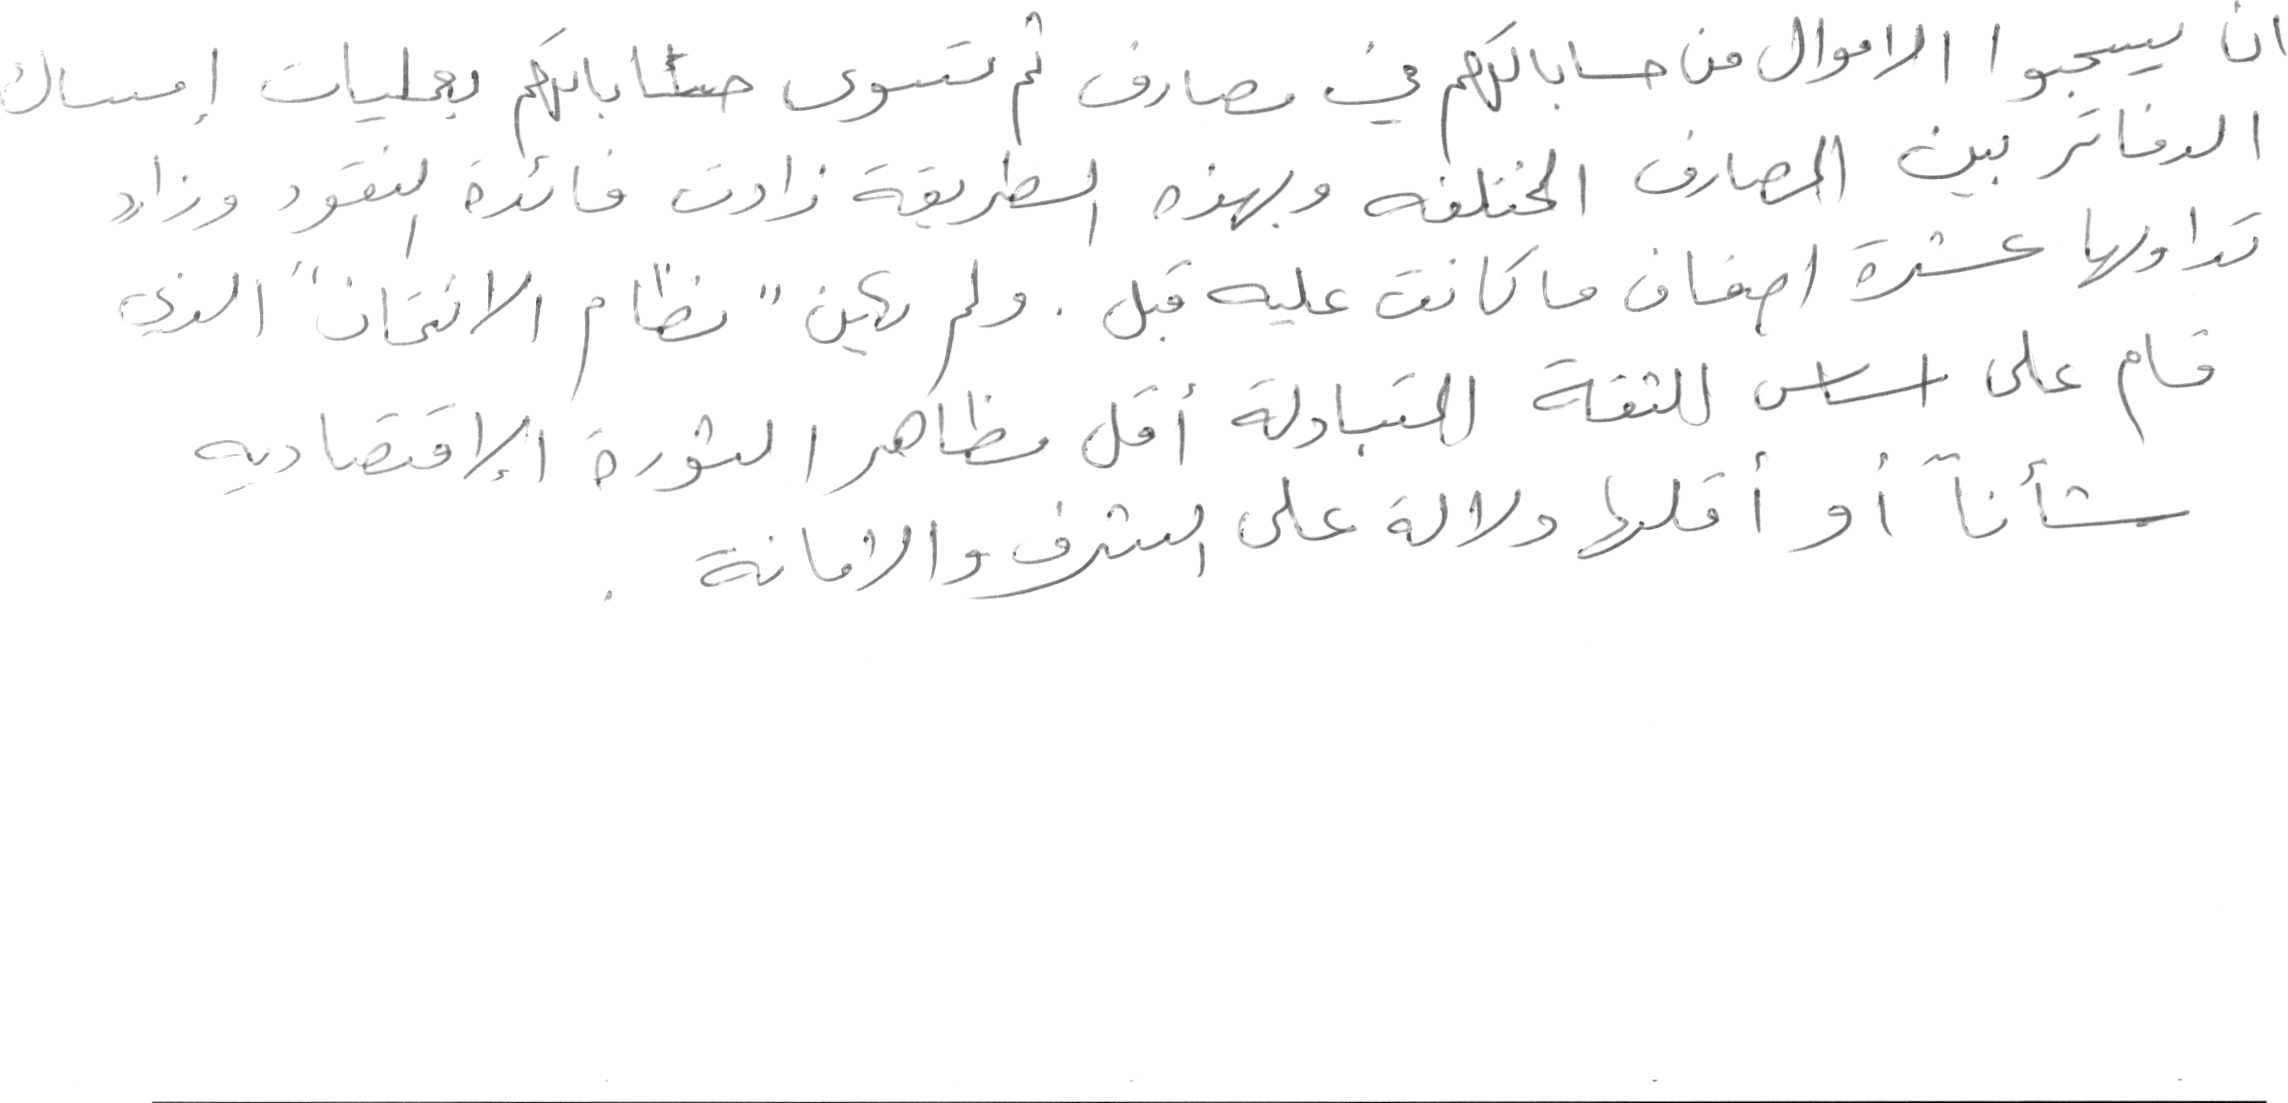 ان يسحبوا الاموال من حساباتهم في مصارف ثم تسوى حساباتهم بعمليات إمساك
الدفاتر بين المصارف المختلفه وبهذه الطريقة زادت فائدة النقود وزاد
تداولها عشرة اضعاف ما كانت عليه قبل . ولم يكن "نظام الائتمان" الذي
قام على اساس الثقة المتبادلة أقل مظاهر الثورة الإقتصاديه
شأناً أو أقلها دلالة على الشرف والامانة .